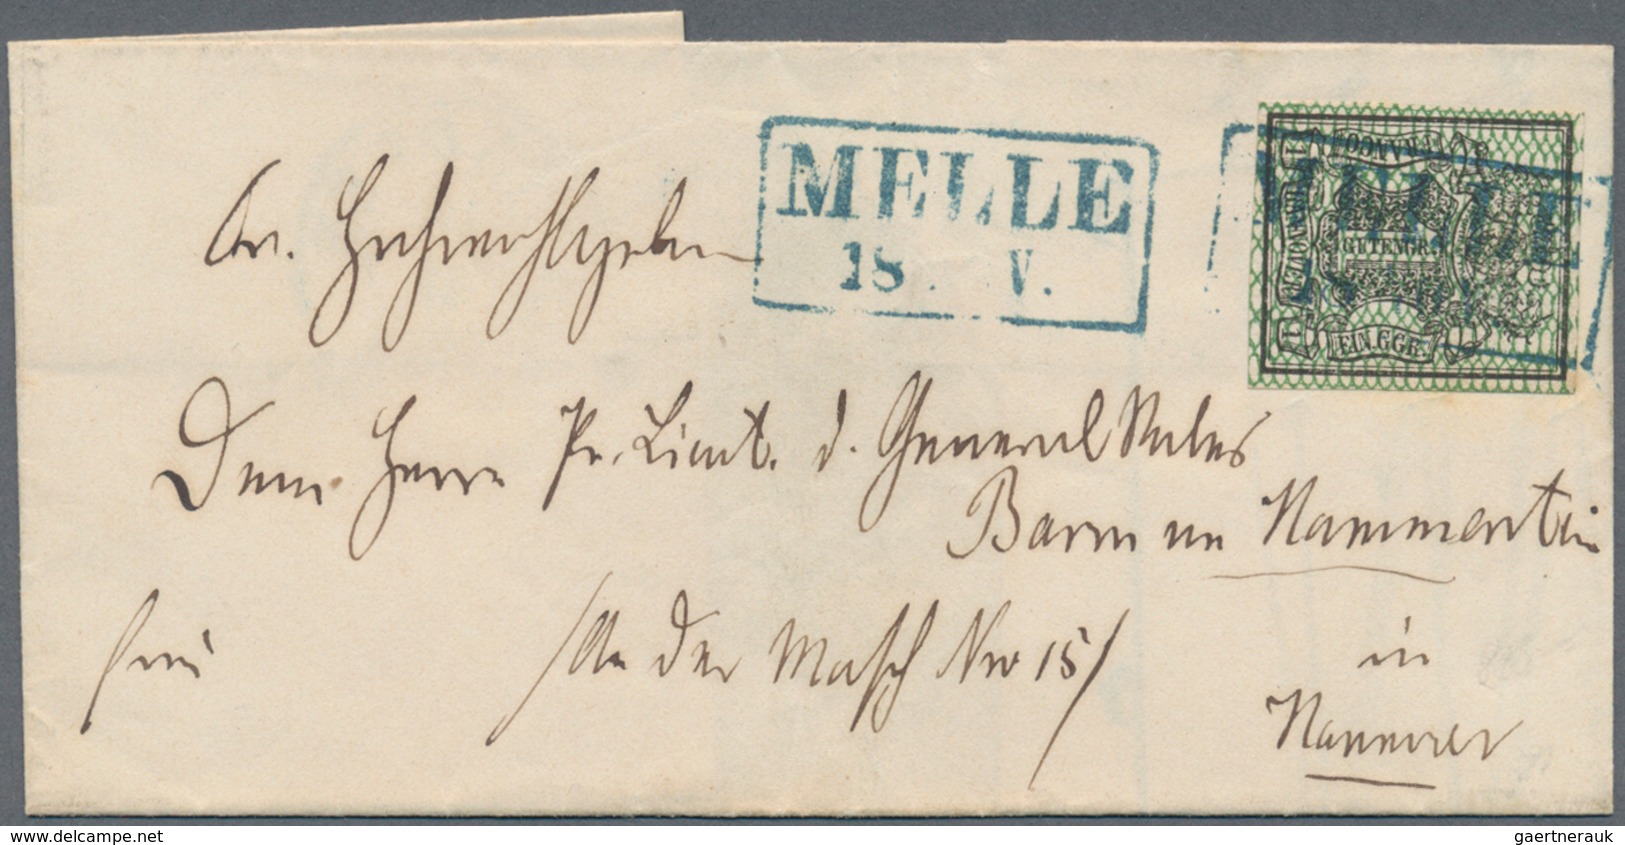 MELLE
18 . V.
FRANCO
GUTENGR.
EIN.GGR.
Sr. Hochwohlgeboren
Dem Herrn Pr. Lieut. d. General Stabes
Baron von Hammerstein
frei
/An der Masch Nro 15/
in
Hannover
www.delcampe.net
gaertnerauk